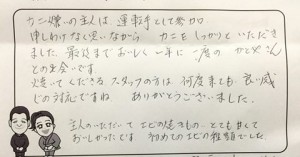 カニ嫌いの主人は 運転手として参加
申しわけなく思いながら カニをしっかりといただき
ました。最後までおいしく 一年に一度の かとやさん
との出会いです。
焼いてくださる スタッフの方は 何度来ても 良い感
じの対応ですね ありがとうございました。
主人のいただいて エビの焼きもの、とても甘くて
おいしかったです 初めてのエビの種類でした